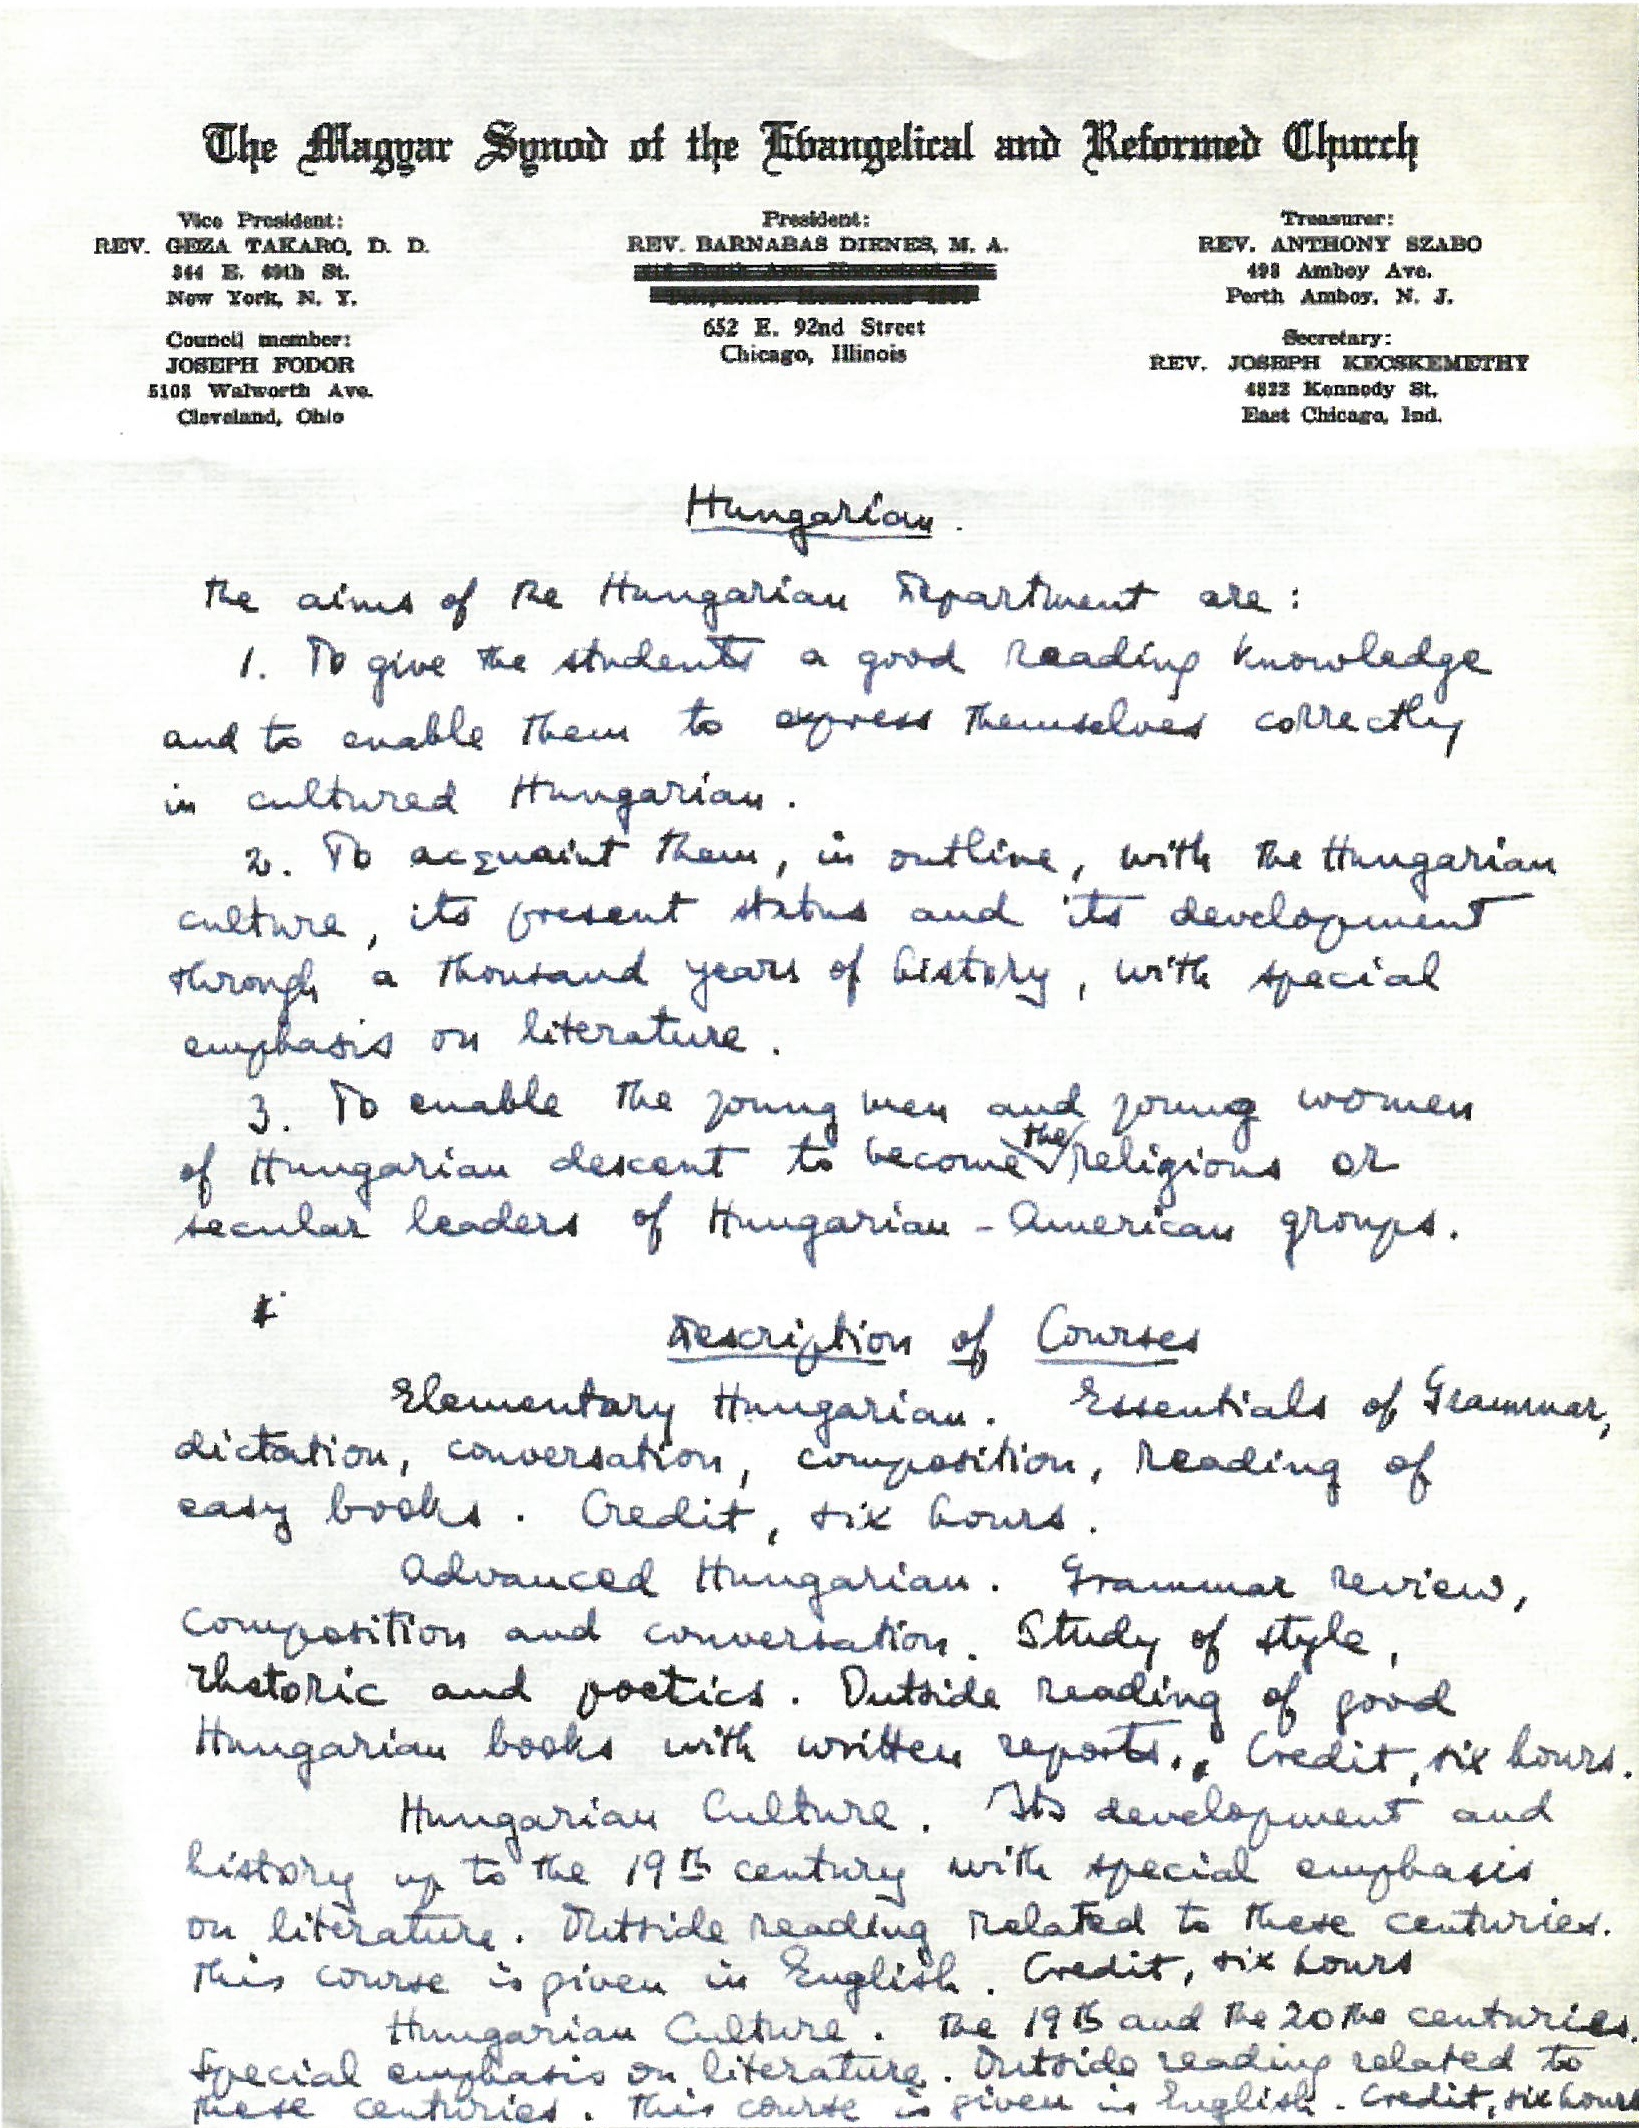 The Magyar Synod of the Evangelical and Reformed Church
Vice President:
REV. GEZA TAKARO, D. D.
344 E. 69th St.
New York, N. Y.
Council member:
JOSEPH FODOR
5103 Walworth Ave.
Cleveland, Ohio
President:
REV. BARNABAS DIENES, M. A.
652 E. 92nd Street
Chicago, Illinois
Treasurer:
REV. ANTHONY SZABO
493 Amboy Ave.
Perth Amboy, N. J.
Secretary:
REV. JOSEPH KECSKEMETHY
4822 Kennedy St.
East Chicago, Ind.
Hungarian.
The aims of the Hungarian Department are:
1. To give the students a good reading knowledge
and to enable them to express themselves correctly
in cultured Hungarian.
2. To acquaint them, in outline, with the Hungarian
culture, its present status and its development
through a thousand years of history, with special
emphasis on literature.
3. To enable the young men and young women
of Hungarian descent to become the religious or
secular leaders of Hungarian-American groups.
Description of Courses
Elementary Hungarian. Essentials of Grammar,
dictation, conversation, composition, reading of
easy books. Credit, six hours.
Advanced Hungarian. Grammar review,
composition and conversation. Study of style,
rhetoric and poetics. Outside reading of good
Hungarian books with written reports. Credit, six hours.
Hungarian Culture. Its development and
history up to the 19th century with special emphasis
on literature. Outside reading related to these centuries.
This course is given in English. Credit, six hours
Hungarian Culture. The 19th and the 20the centuries.
Special emphasis on literature. Outside reading related to
these centuries. This course is given in English. Credit, six hours